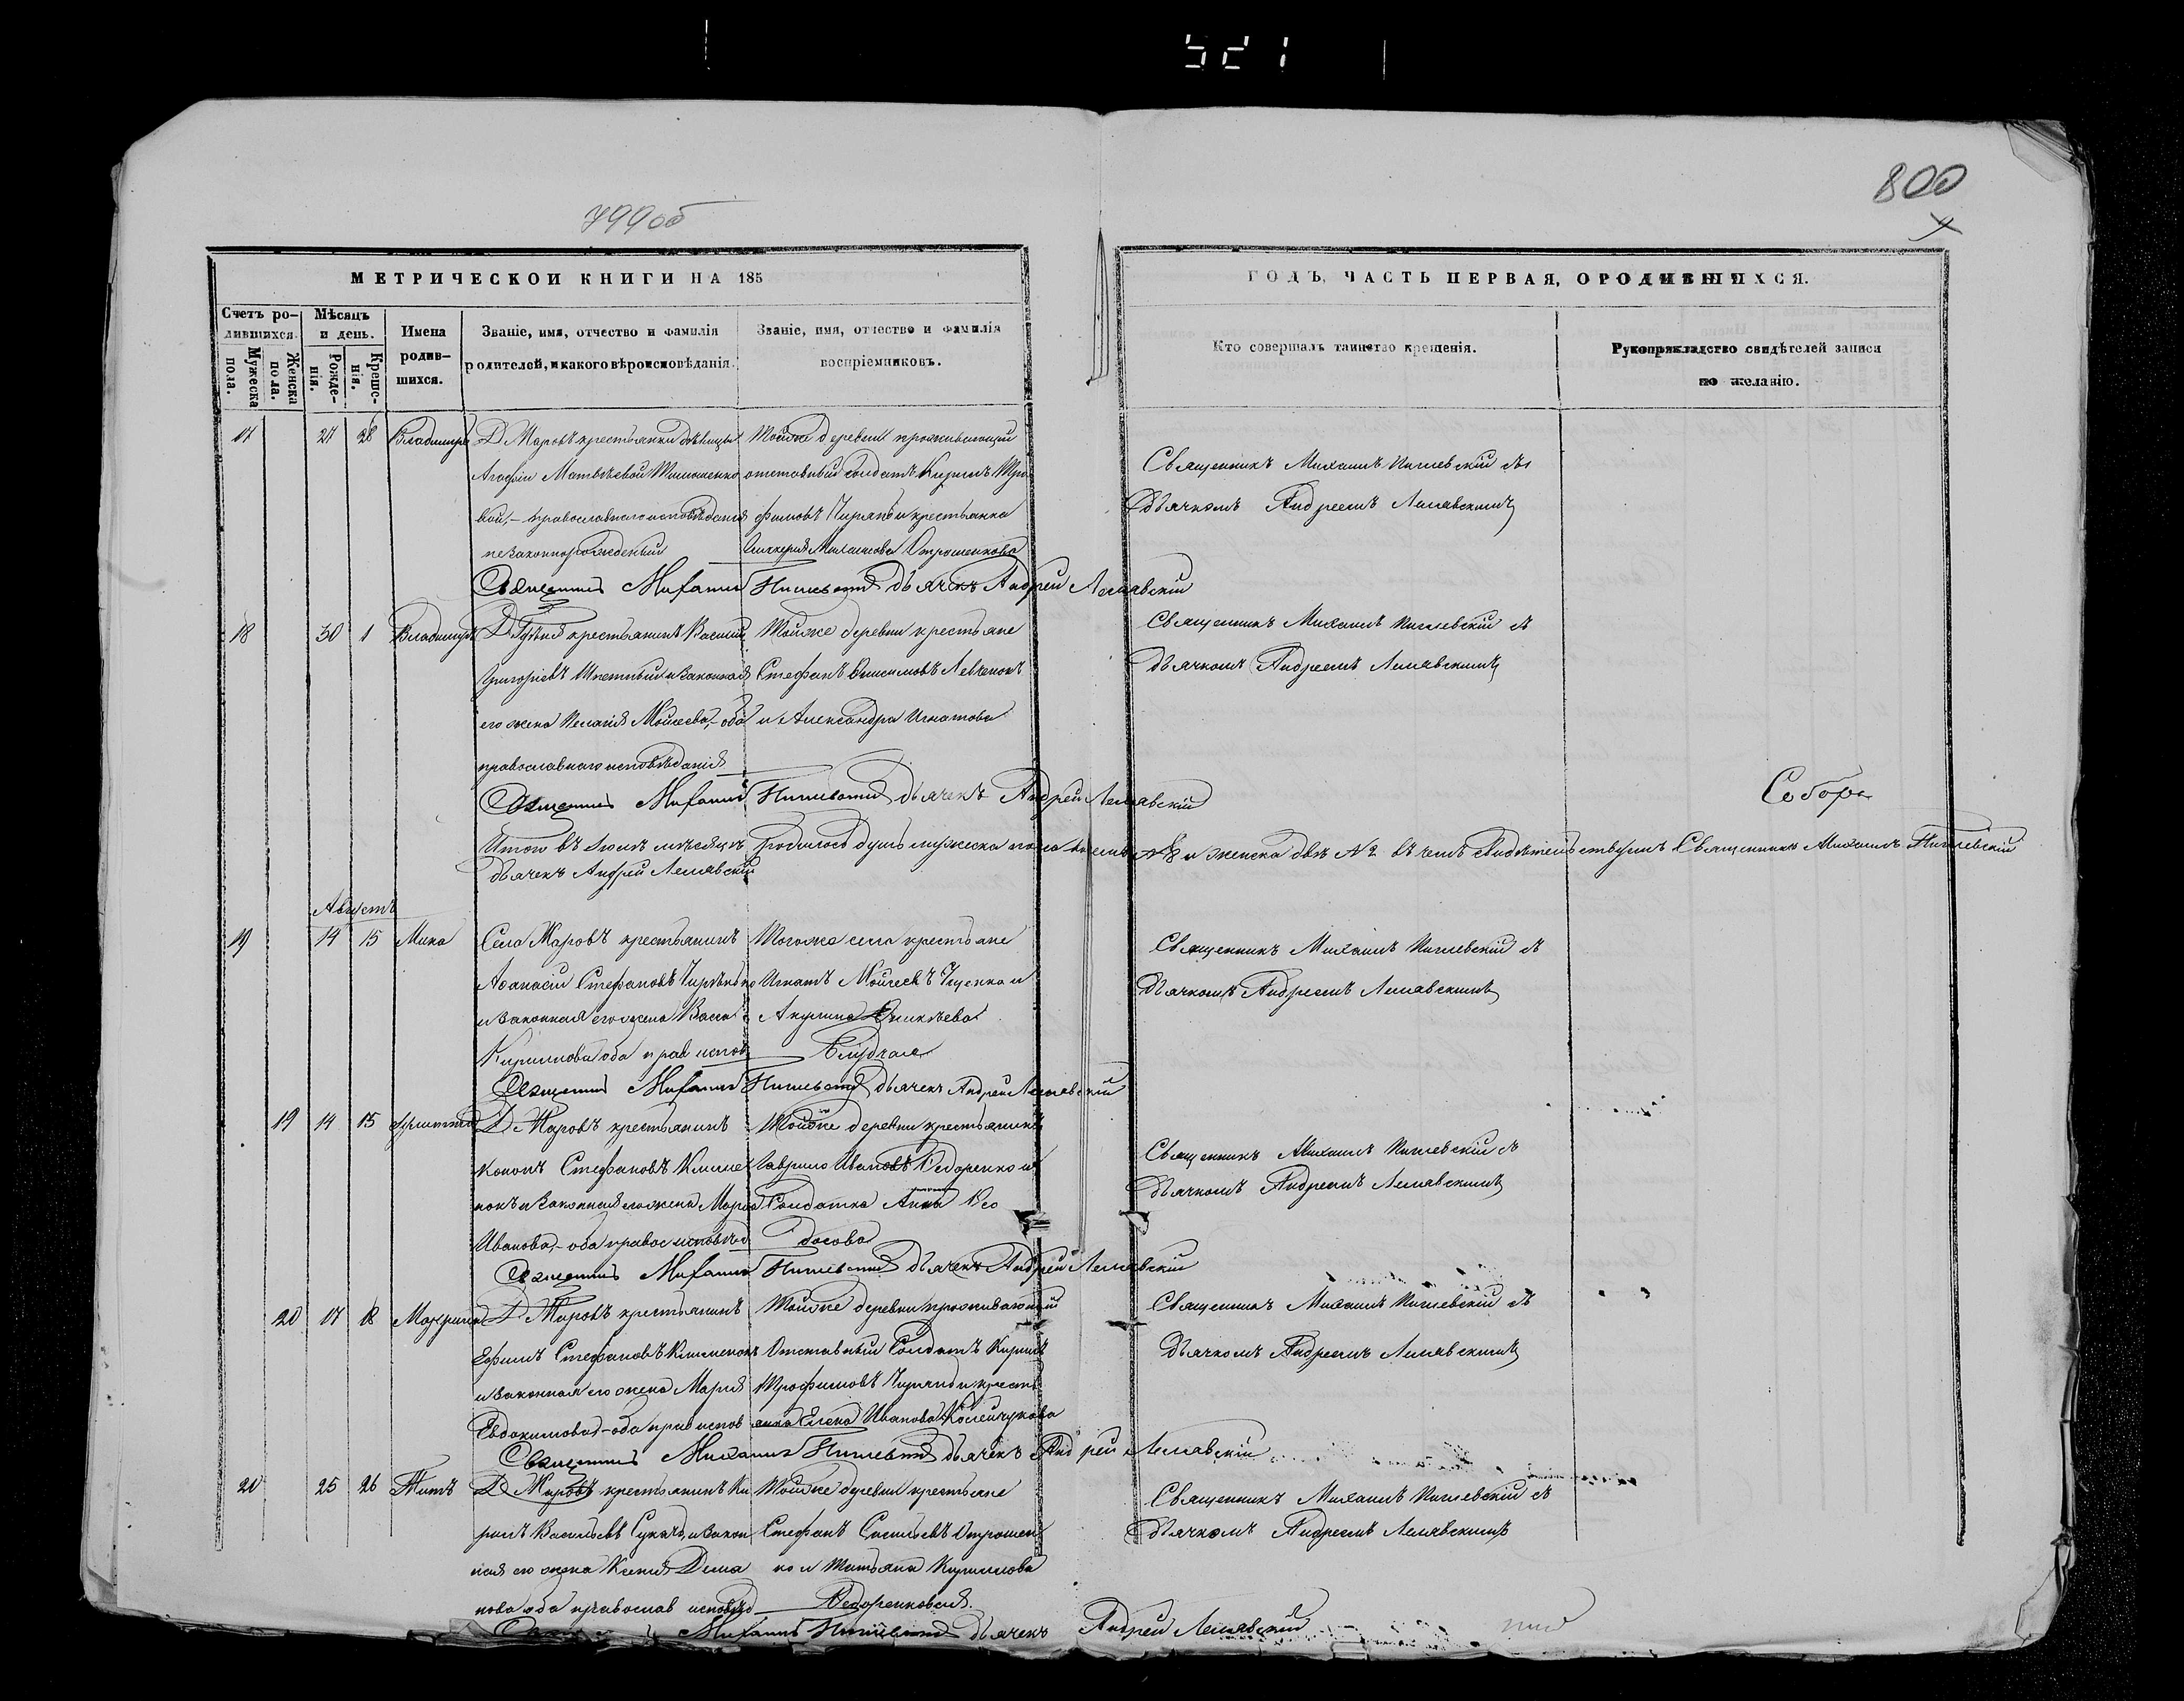 521
800
799об
МЕТРИЧЕСКОИ КНИГИ НА 185
ГОДЪ, ЧАСТЬ ПЕРВАЯ, ОРОДИВШИХСЯ.
Счетъ родившихся.
Мужеска пола.
Женска пола.
Мѣсяцъ и день.
Рожденія.
Крещенія.
Имена родившихся.
Званіе, имя, отчество и фамилія
родителей, и какого вѣроисповѣданія.
Званіе, имя, отчество и фамилія
воспріемниковъ.
Кто совершалъ таинство крещенія.
Рукоприкладство свидѣтелей записи
по желанію.
17 27 28 Владимиръ Д Маровъ крестьянки дѣвицы Тойже деревни проживающій
Агафіи Матвѣевой Тимошенко отставный солдатъ Кирилъ Тро
вой,– православнаго исповѣданія фимовъ и крестьянка
незаконнорожденый Гликерия Михаилова Отрошенкова
Священникъ Михаилъ дьячекъ Андрей Лемявскій
Священникъ Михаилъ съ
дьячкомъ Андреемъ Лемявскимъ
18 30 1 Владимиръ Д крестьянинъ Василій Тойже деревни крестьяне
Григорьевъ и законная Стефанъ Левченокъ
его жена Пелагія Моисеева,– оба и Александра Игнатова
православнаго исповѣданія
Священникъ Михаилъ дьячекъ Андрей Лемявскій
Священникъ Михаилъ съ
дьячкомъ Андреемъ Лемявскимъ
Соборъ
Итого въ Іюлѣ мѣсяцѣ родилось душъ мужеска пола восемь №8 и женска двѣ №2 въ чемъ свидѣтельствуемъ Священникъ Михаилъ
дьячекъ Андрей Лемявскій
Августъ
19 14 15 Мина Села Жаровъ крестьянинъ Тогоже села крестьяне
Афанасій Стефановъ Игнатъ Моисеевъ и
и законная его жена Васса Акулина
Кирилова оба прав испов
Священникъ Михаилъ дьячекъ Андрей Лемявскій
Священникъ Михаилъ съ
дьячкомъ Андреемъ Лемявскимъ
19 14 15 Д Жаровъ крестьянинъ Тойже деревни крестьянинъ
Кононъ Стефановъ Климе Гаврило Ивановъ Федоренко и
нокъ и законная его жена Марфа Солдатка Анна Фео
Иванова,– оба правос исповѣд досова
Священникъ Михаилъ дьячекъ Андрей Лемявскій
Священникъ Михаилъ съ
дьячкомъ Андреемъ Лемявскимъ
20 17 18 Д Жаровъ крестьянинъ Тойже деревни проживающій
Ефимъ Стефановъ Клименокъ Отставный Солдатъ Кирилъ
и законная его жена Марія Трофимовъ и кресть
Евдокимова – оба прав испов янка Елена Иванова
Священникъ Михаилъ дьячекъ Андрей Лемявскій
Священникъ Михаилъ съ
дьячкомъ Андреемъ Лемявскимъ
20 25 26 Титъ Д Жаровъ крестьянинъ Ки Тойже деревни крестьяне
рилъ Васильевъ и закон Стефанъ Отрошен
ная его жена Ксенія Деми ко и Татьяна Кирилова
нова оба православ исповѣд Федоренковая
Михаилъ дьячекъ Андрей Лемявскій
Священникъ Михаилъ съ
дьячкомъ Андреемъ Лемявскимъ